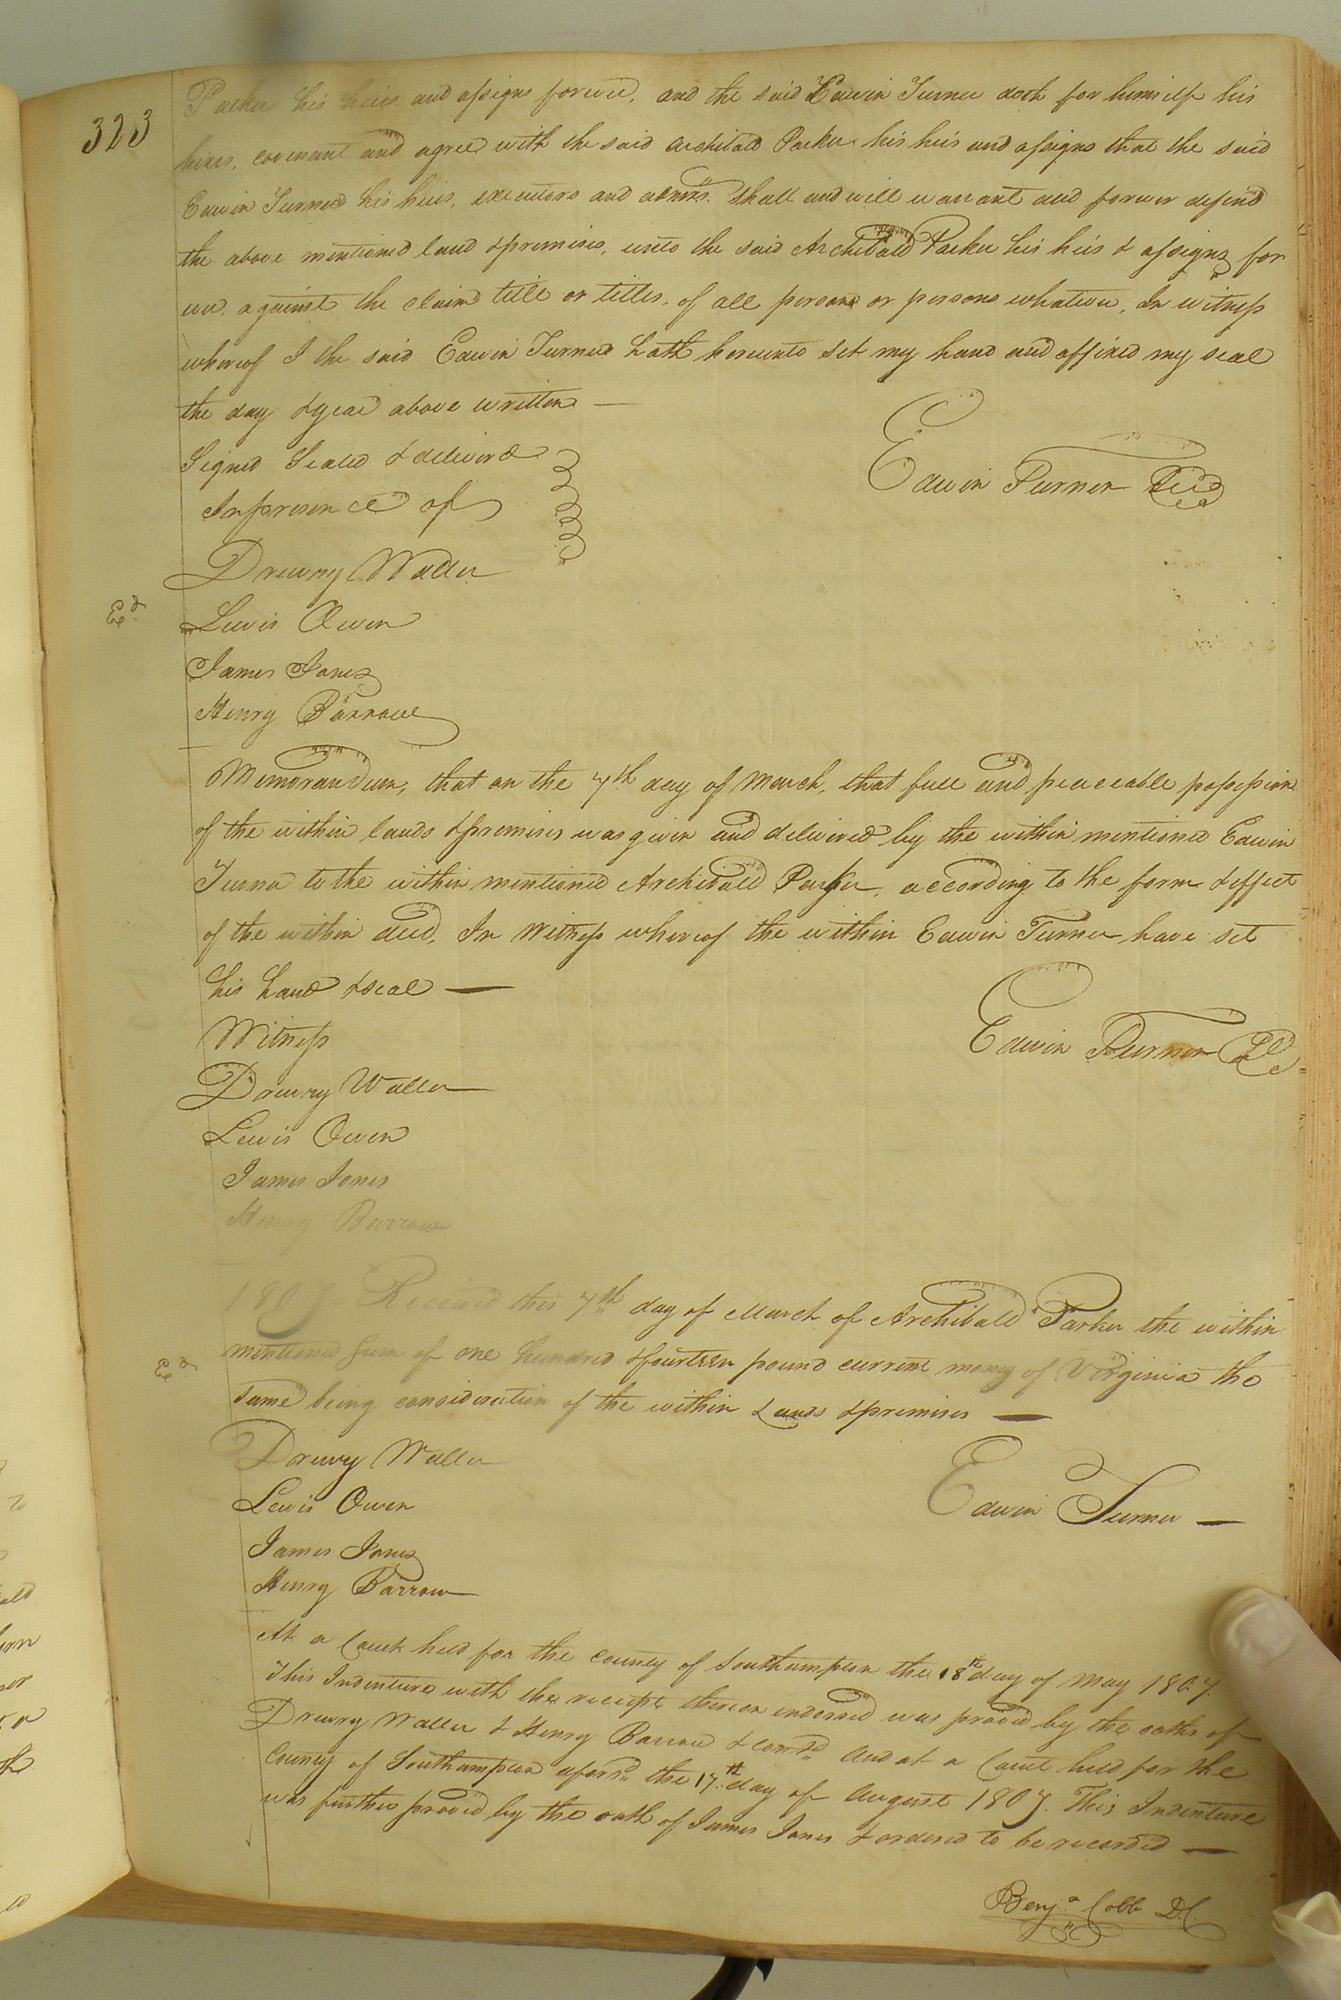 323
Parker his heirs and assigns forever, and the said Edwin Turner doth for himself his
heirs, covenant and agree with the said Archibald Parker his heirs and assigns that the said
Edwin Turner his heirs, executors and admrs. shall and will warrant and forever defend
the above mentioned land & premises, unto the said Archibald Parker his heirs & assigns for
ever, against the claim title or titles, of all person or persons whatever, In witness
whereof I the said Edwin Turner hath hereunto set my hand and affixed my seal
the day & year above written —
Signed Sealed & deliverd
In presence of
Edwin Turner
Drewry Waller
Ed.
Lewis Owen
James Jones
Henry Barrow
Memorandum, that on the 7th day of March, that full and peaceable possession
of the within lands & premises was given and delivered by the within mentioned Edwin
Turner to the within mentioned Archibald Parker, according to the form & effect
of the within deed, In Witness whereof the within Edwin Turner have set
his hand & seal —
Witness
Edwin Turner
Drewry Waller
Lewis Owen
James Jones
Henry Barrow
1807 Received this 7th day of March of Archibald Parker the within
mentioned sum of one hundred & fourteen pound current money of Virginia the
Ed.
same being consideration of the within Lands & premises —
Drewry Waller
Edwin Turner —
Lewis Owen
James Jones
Henry Barrow
At a Court held for the County of Southampton the 18th day of May 1807.
This Indenture with the receipt thereon endorsed was proved by the oaths of
Drewry Waller & Henry Barrow & contd. and at a Court held for the
County of Southampton afors'd. the 17th day of August 1807. This Indenture
was further proved by the oath of James Jones & ordered to be recorded —
Benja. Cobb D.C.